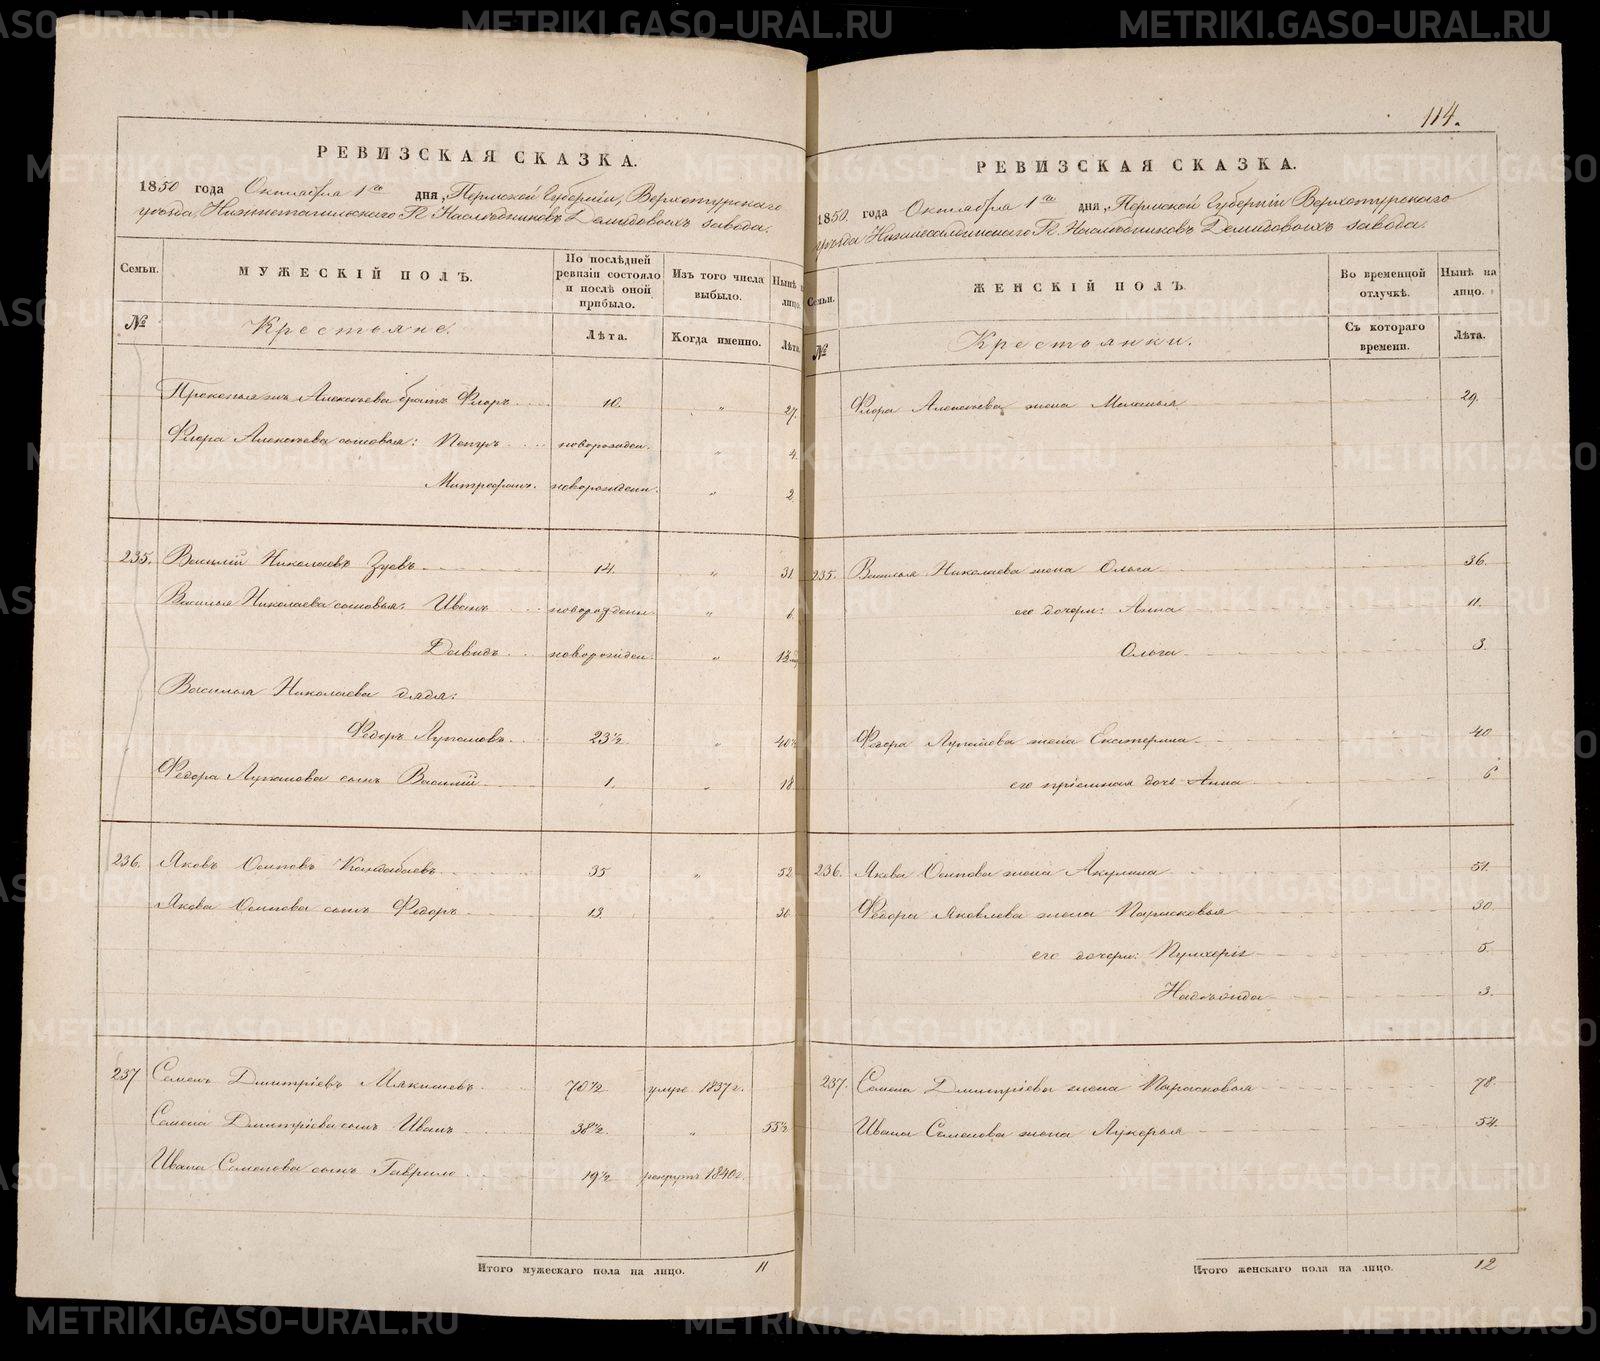 114.
РЕВИЗСКАЯ СКАЗКА.
1850 года Октября 1го дня, Пермской Губернии, Верхотурскаго
уѣзда, Нижнетагильскаго Гг. Наслѣдниковъ Демидовыхъ завода.
Семьи. МУЖЕСКІЙ ПОЛЪ. По послѣдней ревизіи состояло и послѣ оной прибыло. Изъ того числа выбыло. Нынѣ на лицо.
№ Крестьяне. Лѣта. Когда именно. Лѣта.
Алексѣева братъ Флоръ 10. " 27.
Флора Алексѣева сыновья: Петръ новорожден. " 4.
Митрофанъ. новорожден. " 2
235. Василій Николаевъ Зуевъ 14. " 31.
Василья Николаева сыновья: Иванъ новорожден. " 6.
Давидъ новорожден. "
Василья Николаева дядя:
Федоръ Лупановъ. 23½ " 40½
Федора Лупанова сынъ Василій 1. " 18
236. Яковъ Осиповъ 35 " 52.
Якова Осипова сынъ Федоръ 13. 30.
237 Семенъ Дмитріевъ Мякишевъ 70½ умре 1837 г.
Семена Дмитріева сынъ Иванъ 38½. " 55½
Ивана Семенова сынъ Гаврило 19½ рекрутъ 1840 г.
Итого мужескаго пола на лицо. 11
РЕВИЗСКАЯ СКАЗКА.
1850. года Октября 1го дня, Пермской Губерніи Верхотурскаго
уѣзда Нижнесалдинскаго Гг. Наслѣдниковъ Демидовыхъ завода.
Семьи. ЖЕНСКІЙ ПОЛЪ. Во временной отлучкѣ. Нынѣ на лицо.
№ Крестьянки. Съ котораго времени. Лѣта.
Флора Алексѣева жена Маланья 29.
235. Василья Николаева жена Ольга 36.
его дочери: Анна 11.
Ольга 3.
Федора Лупанова жена Екатерина 40
его пріемная дочь Анна 6
236. Якова Осипова жена Акулина 51.
Федора Яковлева жена Парасковья 30.
его дочери: Пулхерія 5.
Надежда 3.
237. Семена Дмитріева жена Парасковья 78.
Ивана Семенова жена Лукерья 54.
Итого женскаго пола на лицо. 12
METRIKI.GASO-URAL.RU